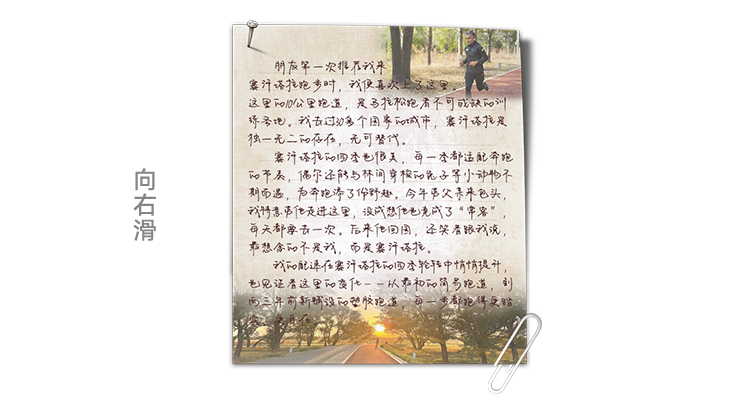 向右滑
朋友第一次推荐我来
赛汗塔拉跑步时，我便喜欢上了这里。
这里的10公里跑道，是马拉松跑者不可或缺的训
练场地。我去过30多个国家的城市，赛汗塔拉是
独一无二的存在，无可替代。
赛汗塔拉的四季也很美，每一季都适配奔跑
的节奏，偶尔还能与林间穿梭的兔子等小动物不
期而遇，为奔跑添了份野趣。今年岳父来包头，
我特意带他走进这里，没成想他也竟成了“常客”，
每天都要去一次。后来他回国，还笑着跟我说，
最想念的不是我，而是赛汗塔拉。
我的配速在赛汗塔拉的四季轮转中悄悄提升，
也见证着这里的变化——从最初的简易跑道，到
两三年前新铺设的塑胶跑道，每一步都跑得更踏